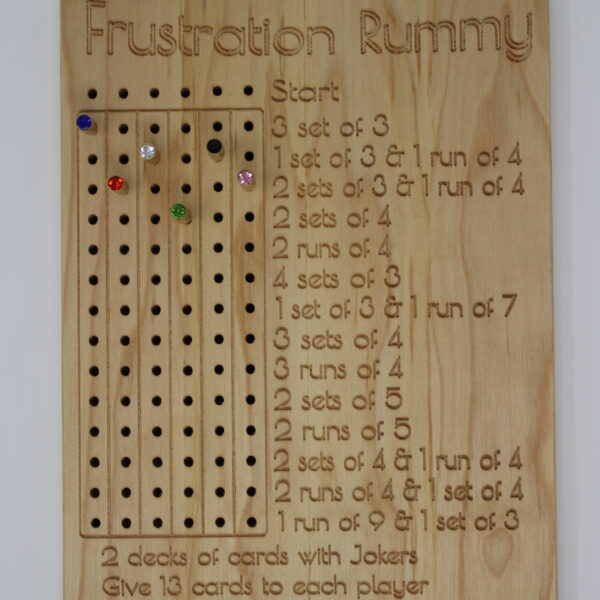 Frustration Rummy
Start
3 set of 3
1 set of 3 & 1 run of 4
2 sets of 3 & 1 run of 4
2 sets of 4
2 runs of 4
4 sets of 3
1 set of 3 & 1 run of 7
3 sets of 4
3 runs of 4
2 sets of 5
2 runs of 5
2 sets of 4 & 1 run of 4
2 runs of 4 & 1 set of 4
1 run of 9 & 1 set of 3
2 decks of cards with Jokers
Give 13 cards to each player